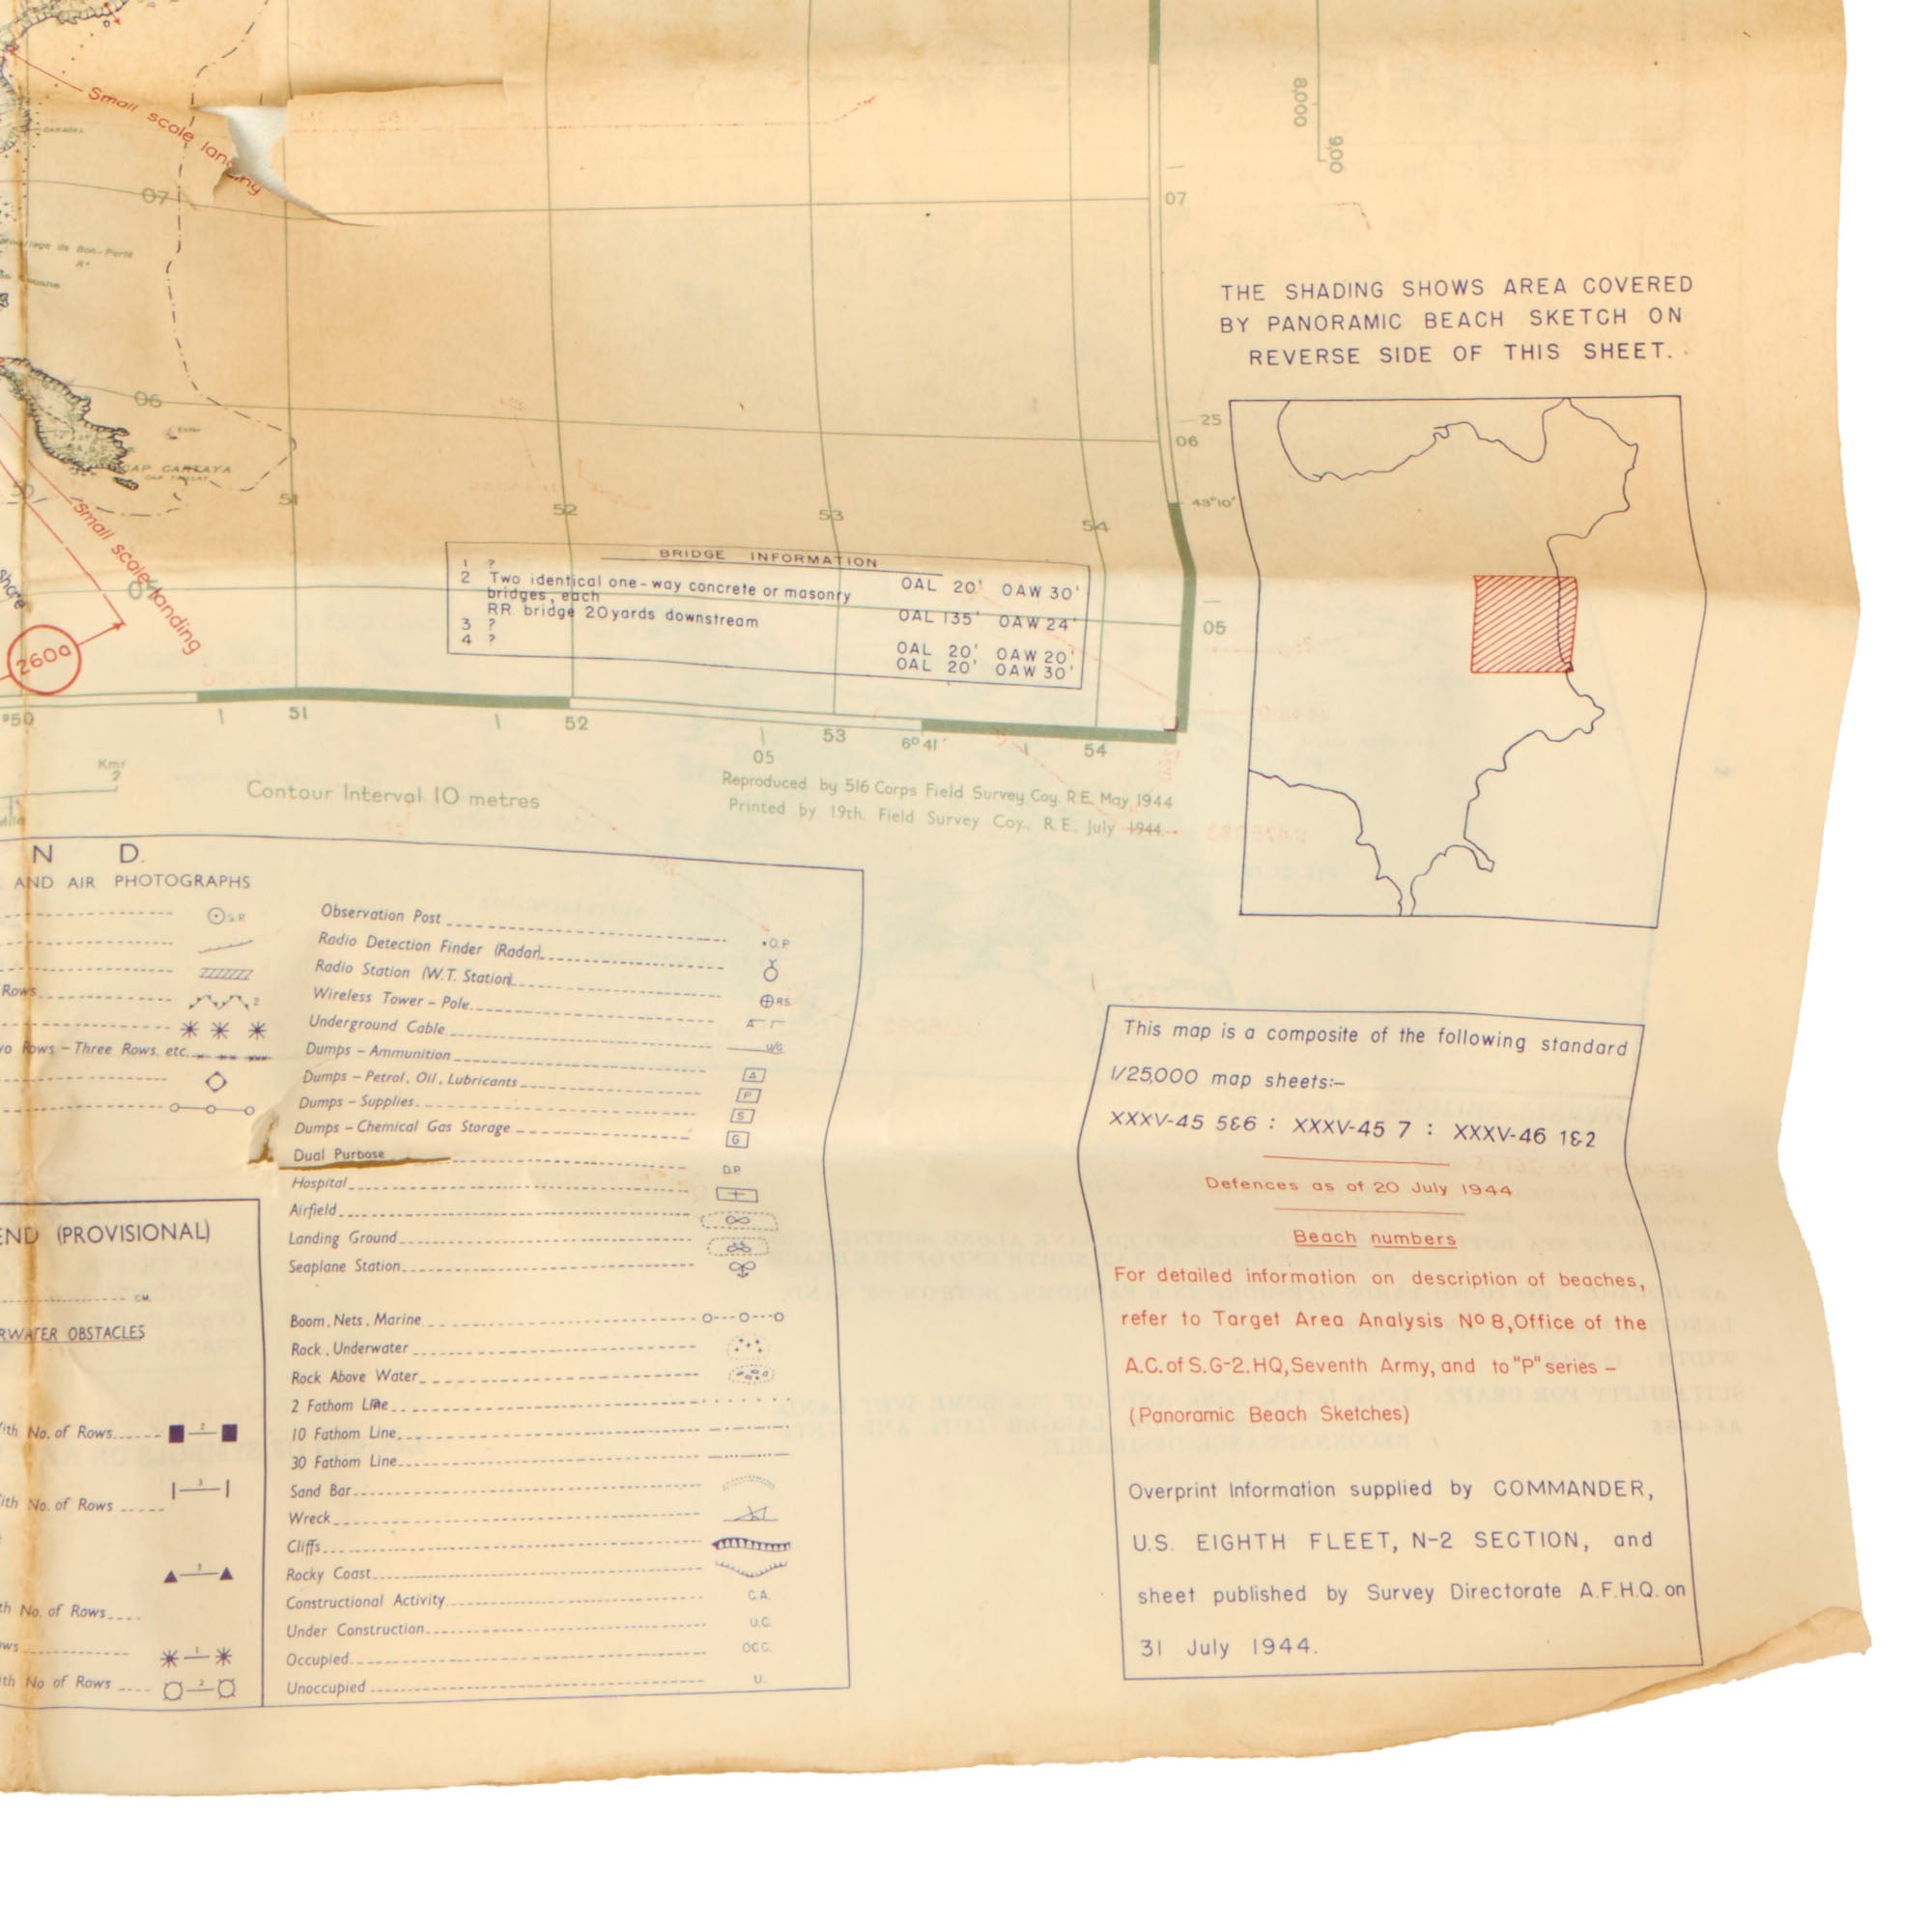 Small scale landing
07
07
8,000
9,00
THE SHADING SHOWS AREA COVERED
BY PANORAMIC BEACH SKETCH ON
REVERSE SIDE OF THIS SHEET.
06
25
06
43°10'
CAP CARTAYA
51
52
53
54
Small scale landing
260a
BRIDGE INFORMATION
1 ? OAL 20' OAW 30'
2 Two identical one-way concrete or masonry
bridges, each OAL 135' OAW 24'
RR. bridge 20 yards downstream
3 ? OAL 20' OAW 20'
4 ? OAL 20' OAW 30'
05
51
52
53
54
05
6°41'
Kms
2
Contour Interval 10 metres
Reproduced by 516 Corps Field Survey Coy. R.E. May 1944
Printed by 19th. Field Survey Coy., R.E. July 1944.
N D.
AND AIR PHOTOGRAPHS
S.P.
Rows 2
Rows - Three Rows, etc.
Observation Post O.P.
Radio Detection Finder (Radar)
Radio Station (W.T. Station) R.S.
Wireless Tower - Pole
Underground Cable u/c
Dumps - Ammunition A
Dumps - Petrol, Oil, Lubricants P
Dumps - Supplies S
Dumps - Chemical Gas Storage G
Dual Purpose D.P.
Hospital
Airfield
Landing Ground
Seaplane Station
Boom, Nets, Marine
Rock, Underwater
Rock Above Water
2 Fathom Line
10 Fathom Line
30 Fathom Line
Sand Bar
Wreck
Cliffs
Rocky Coast
Constructional Activity C.A.
Under Construction U.C.
Occupied OCC.
Unoccupied U.
END (PROVISIONAL)
CM.
RWATER OBSTACLES
ith No. of Rows 2
3
ith No. of Rows
3
th No. of Rows
ows 1
ith No of Rows 2
This map is a composite of the following standard
1/25,000 map sheets:-
XXXV-45 5&6 : XXXV-45 7 : XXXV-46 1&2
Defences as of 20 July 1944
Beach numbers
For detailed information on description of beaches,
refer to Target Area Analysis No 8, Office of the
A.C. of S. G-2. HQ, Seventh Army, and to "P" series -
(Panoramic Beach Sketches)
Overprint Information supplied by COMMANDER,
U.S. EIGHTH FLEET, N-2 SECTION, and
sheet published by Survey Directorate A.F.H.Q. on
31 July 1944.